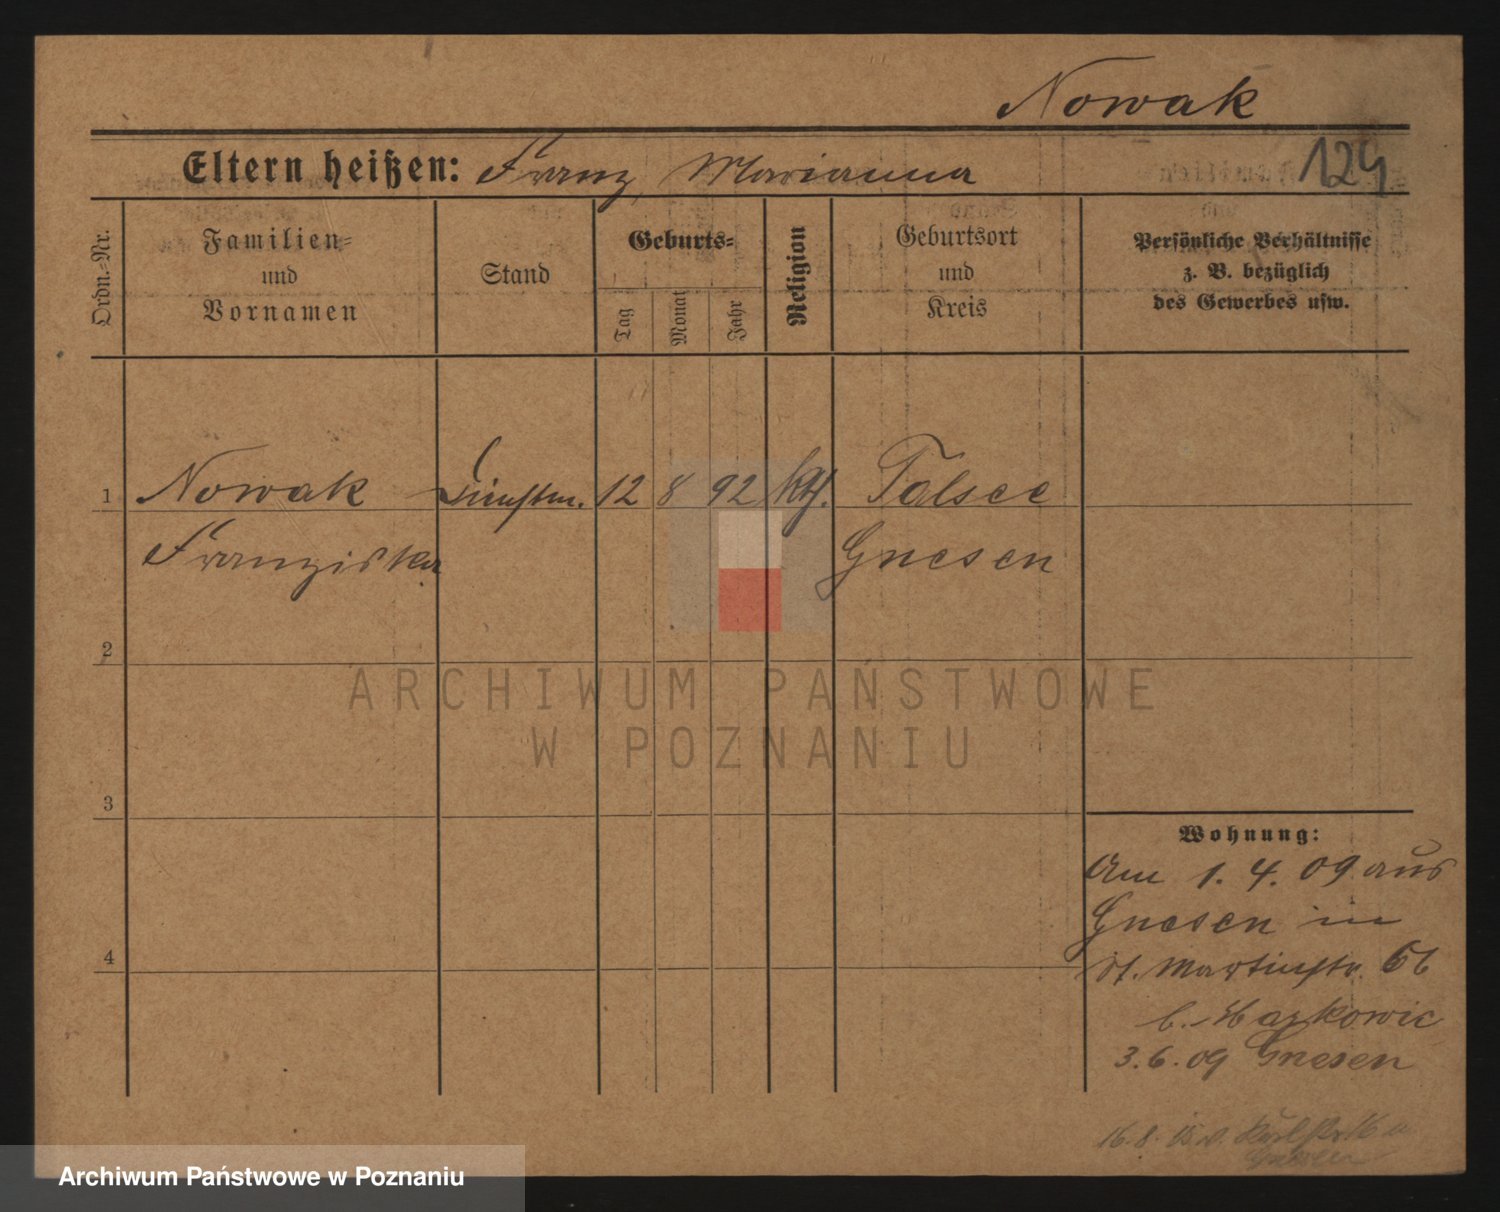 Nowak
Eltern heißen: Franz, Marianna
124
Ordn.-Nr.
Familien-
und
Vornamen
Stand
Geburts-
Tag
Monat
Jahr
Religion
Geburtsort
und
Kreis
Persönliche Verhältnisse
z. B. bezüglich
des Gewerbes usw.
1 Nowak Dienstm. 12 8 92 kth. Talsee
Franziska Gnesen
2
ARCHIWUM PAŃSTWOWE
W POZNANIU
3
Wohnung:
Am 1. 4. 09 aus
Gnesen in
St. Martinstr.
b.
3. 6. 09 Gnesen
4
16. 8.
Archiwum Państwowe w Poznaniu